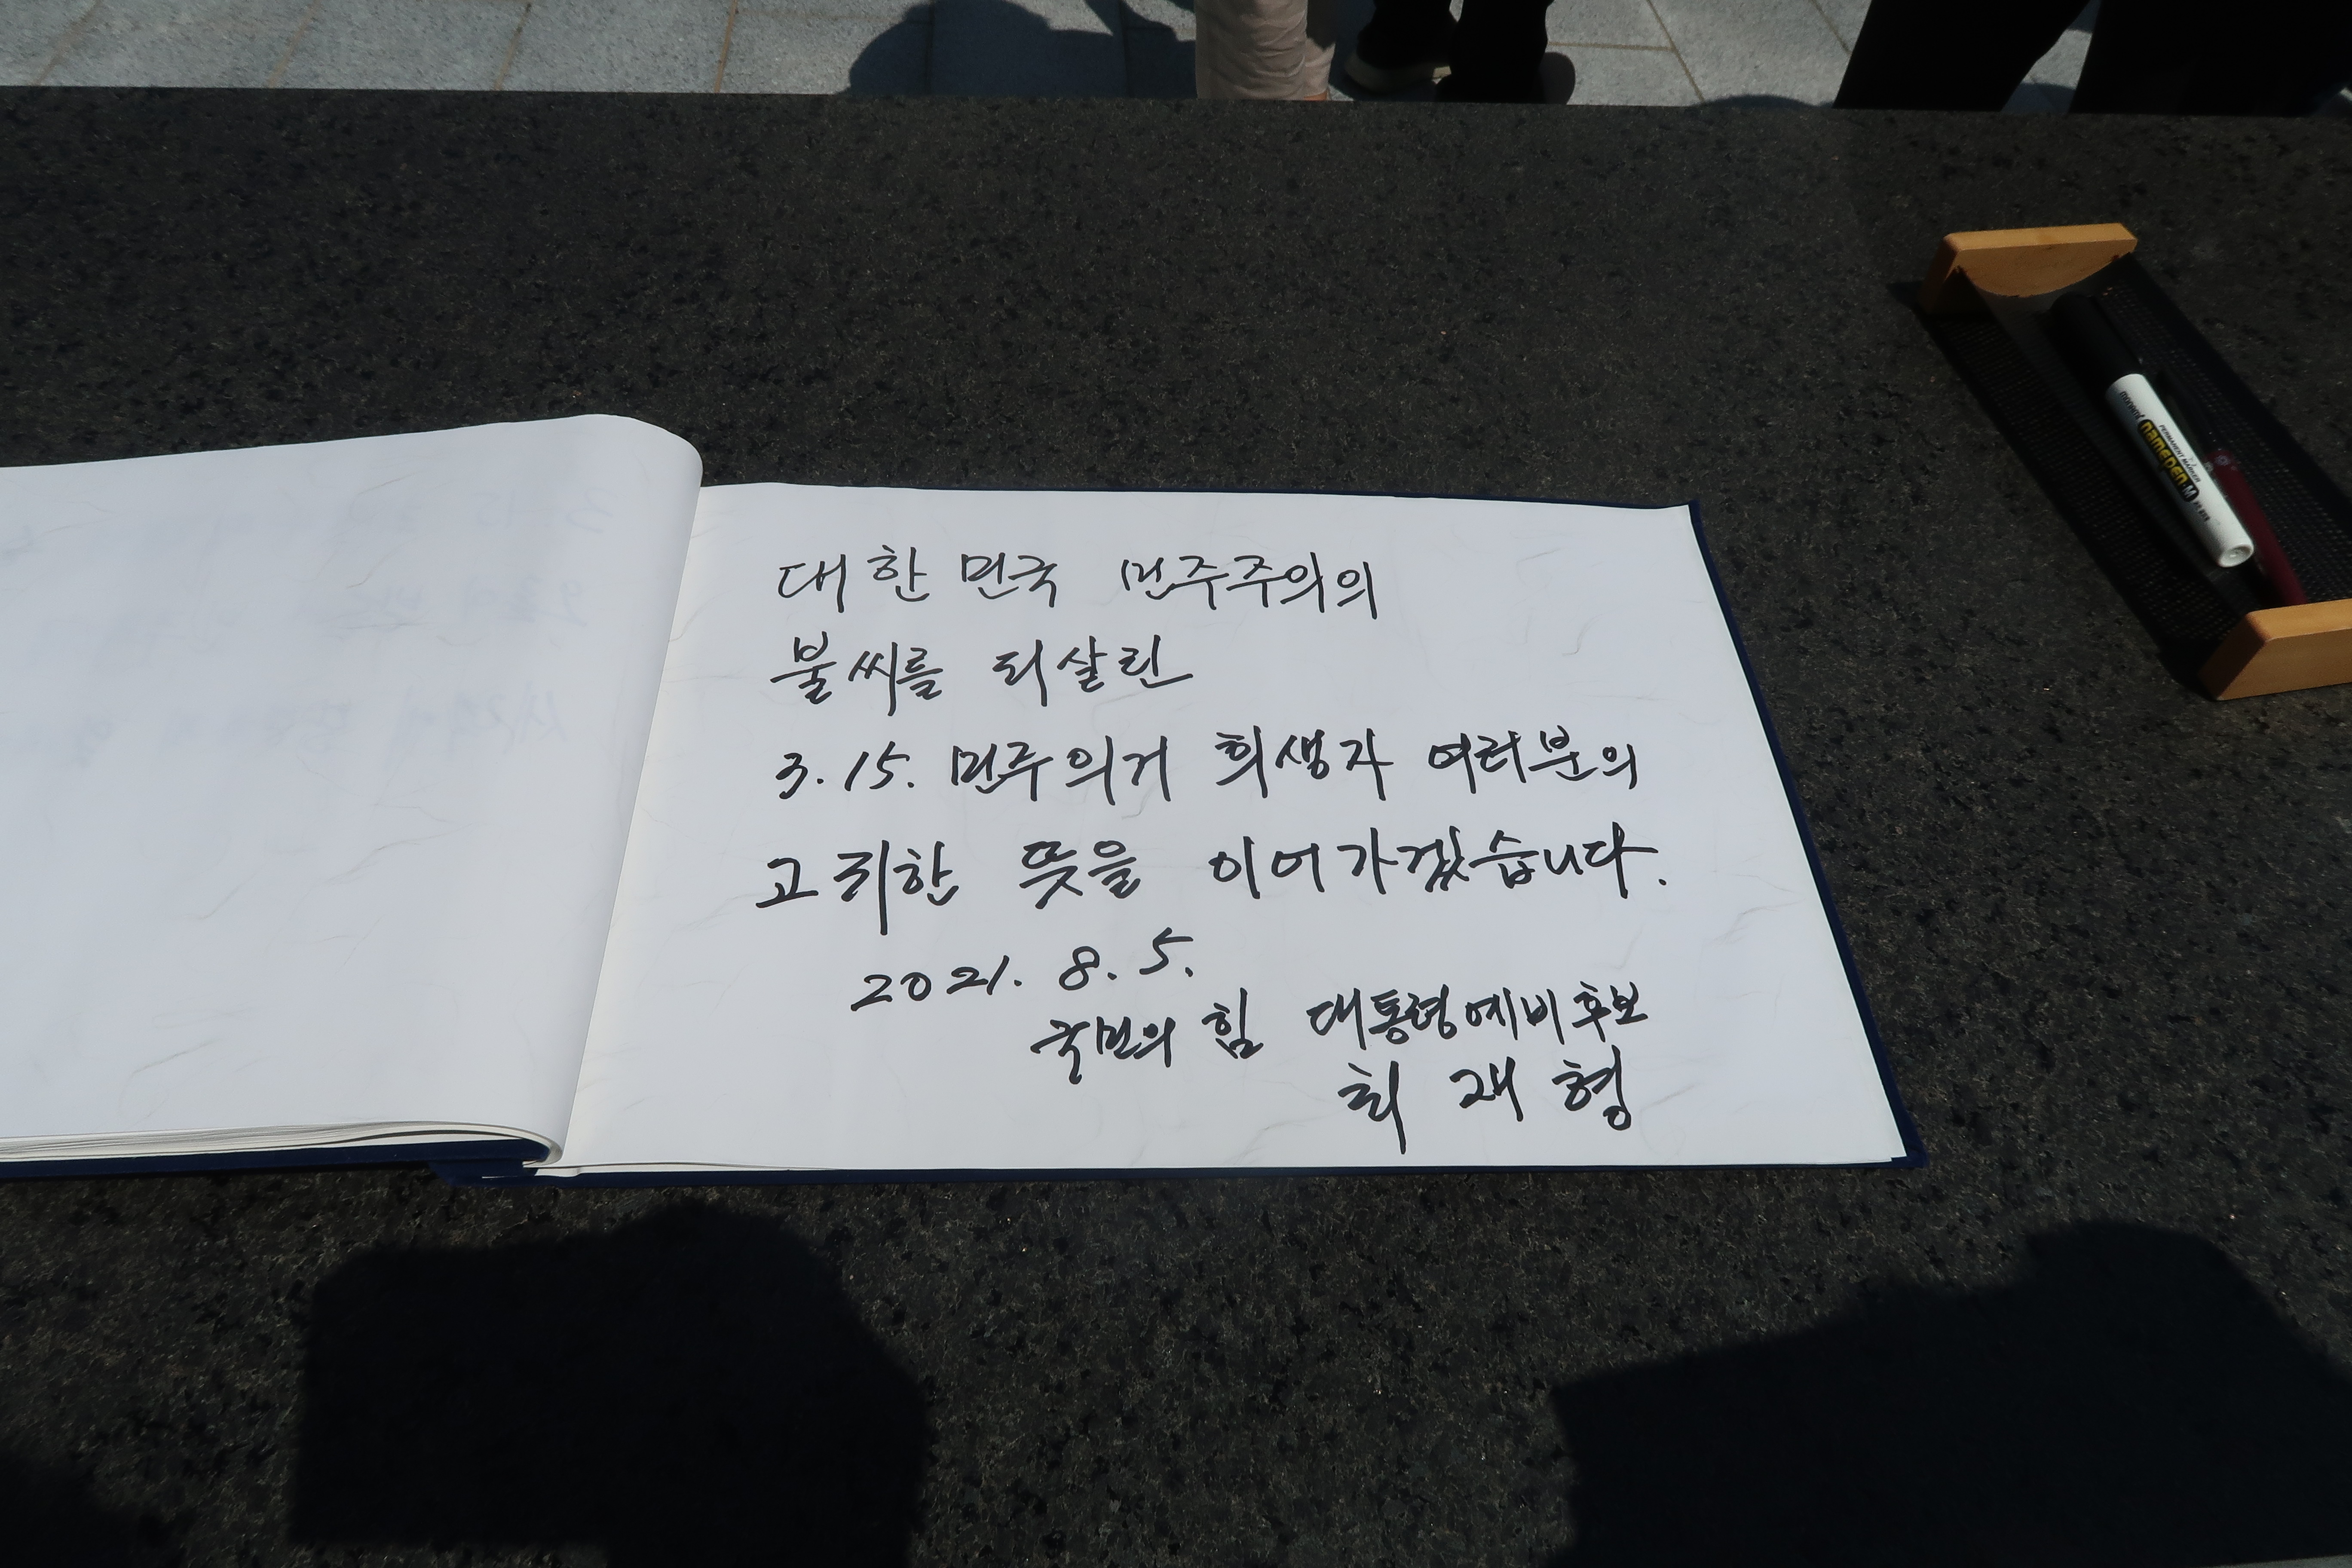 대한민국 민주주의의
불씨를 되살린
3.15. 민주의거 희생자 여러분의
고귀한 뜻을 이어가겠습니다.
2021. 8. 5.
국민의 힘 대통령예비후보
최재형
PERMANENT MARKER
namepen·M